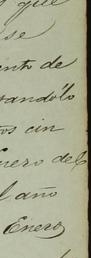 que
se
ento de
tandólo
os cin
nero del
l año
Enero